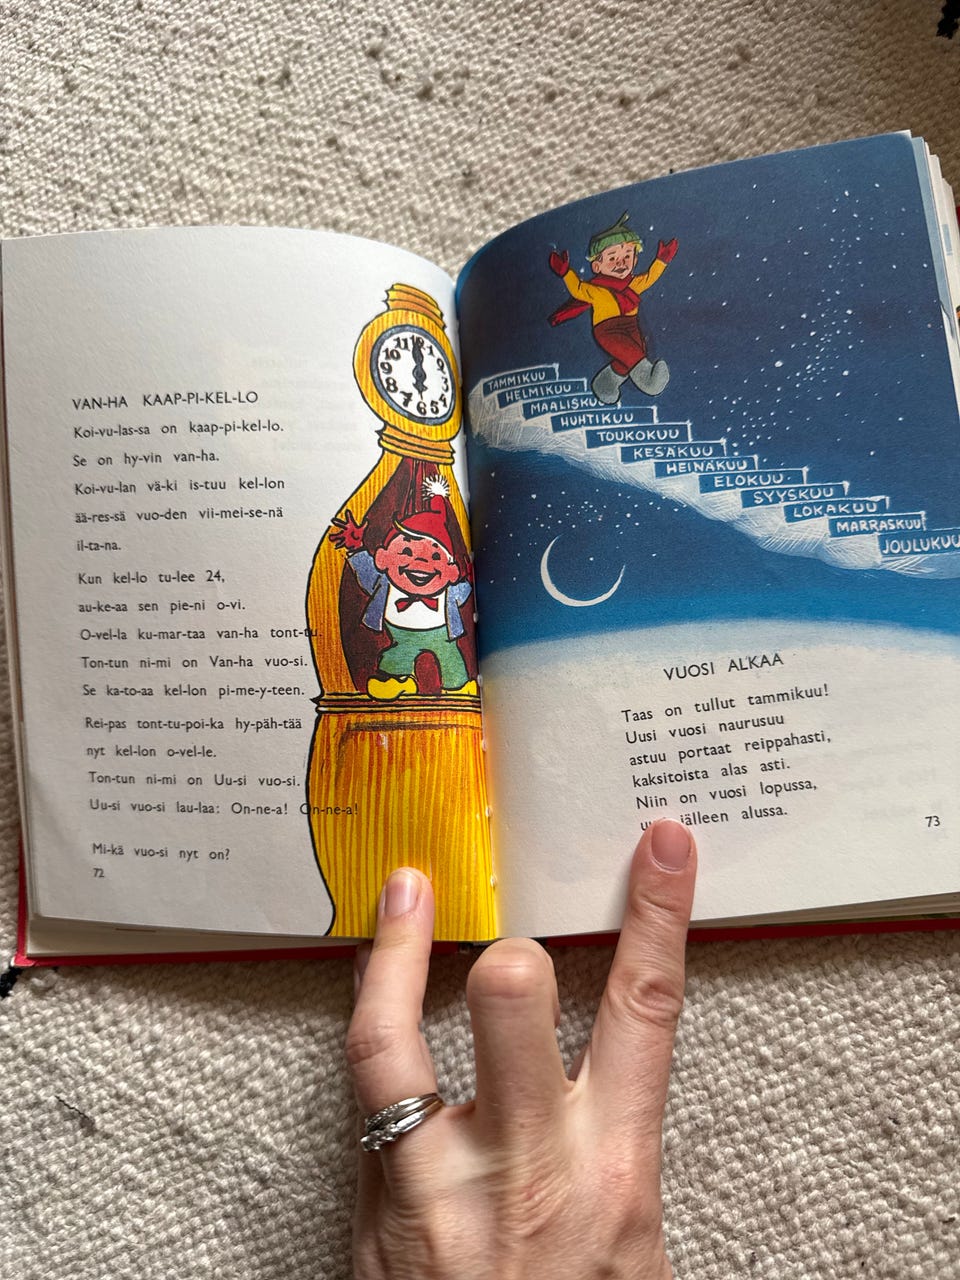 VAN-HA KAAP-PI-KEL-LO
Koi-vu-las-sa on kaap-pi-kel-lo.
Se on hy-vin van-ha.
Koi-vu-lan vä-ki is-tuu kel-lon
ää-res-sä vuo-den vii-mei-se-nä
il-ta-na.
Kun kel-lo tu-lee 24,
au-ke-aa sen pie-ni o-vi.
O-vel-la ku-mar-taa van-ha tont-tu.
Ton-tun ni-mi on Van-ha vuo-si.
Se ka-to-aa kel-lon pi-me-y-teen.
Rei-pas tont-tu-poi-ka hy-päh-tää
nyt kel-lon o-vel-le.
Ton-tun ni-mi on Uu-si vuo-si.
Uu-si vuo-si lau-laa: On-ne-a! On-ne-a!
Mi-kä vuo-si nyt on?
72
11 12 1
10 2
9 3
8 4
7 6 5
TAMMIKUU
HELMIKUU
MAALISKUU
HUHTIKUU
TOUKOKUU
KESÄKUU
HEINÄKUU
ELOKUU
SYYSKUU
LOKAKUU
MARRASKUU
JOULUKUU
VUOSI ALKAA
Taas on tullut tammikuu!
Uusi vuosi naurusuu
astuu portaat reippahasti,
kaksitoista alas asti.
Niin on vuosi lopussa,
jälleen alussa.
73